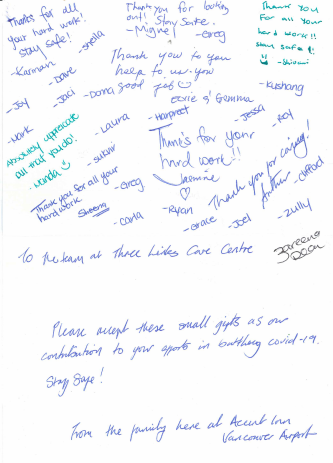 Thanks for all
your hard work!
stay safe!
- Karman
- Sheila
- Dave
- Joy
- Jaci
- Dana
- Mark
Absolutely appreciate
all that you do!
- Wanda
- Laura
- Sukhi
Thank you for all your
hard work
- Greg
- Carla
Thank you for looking
out! Stay Safe.
- Miguel
- Greg
Thank you to you
help to us. you
good job
- Harpreet
Thanks for your
hard work!!
Jasmine
- Ryan
- Grace
- Joel
THANK YOU
For all your
hard work &
stay safe!
- Kushang
- Jessa
- Roy
Thank you for caring!
Arthur
- Clifford
- Zully
Zareena
Dean
To the team at Three Links Care Centre
Please accept these small gifts as our
contribution to your efforts in battling covid-19.
Stay Safe!
From the family here at Accent Inn
Vancouver Airport